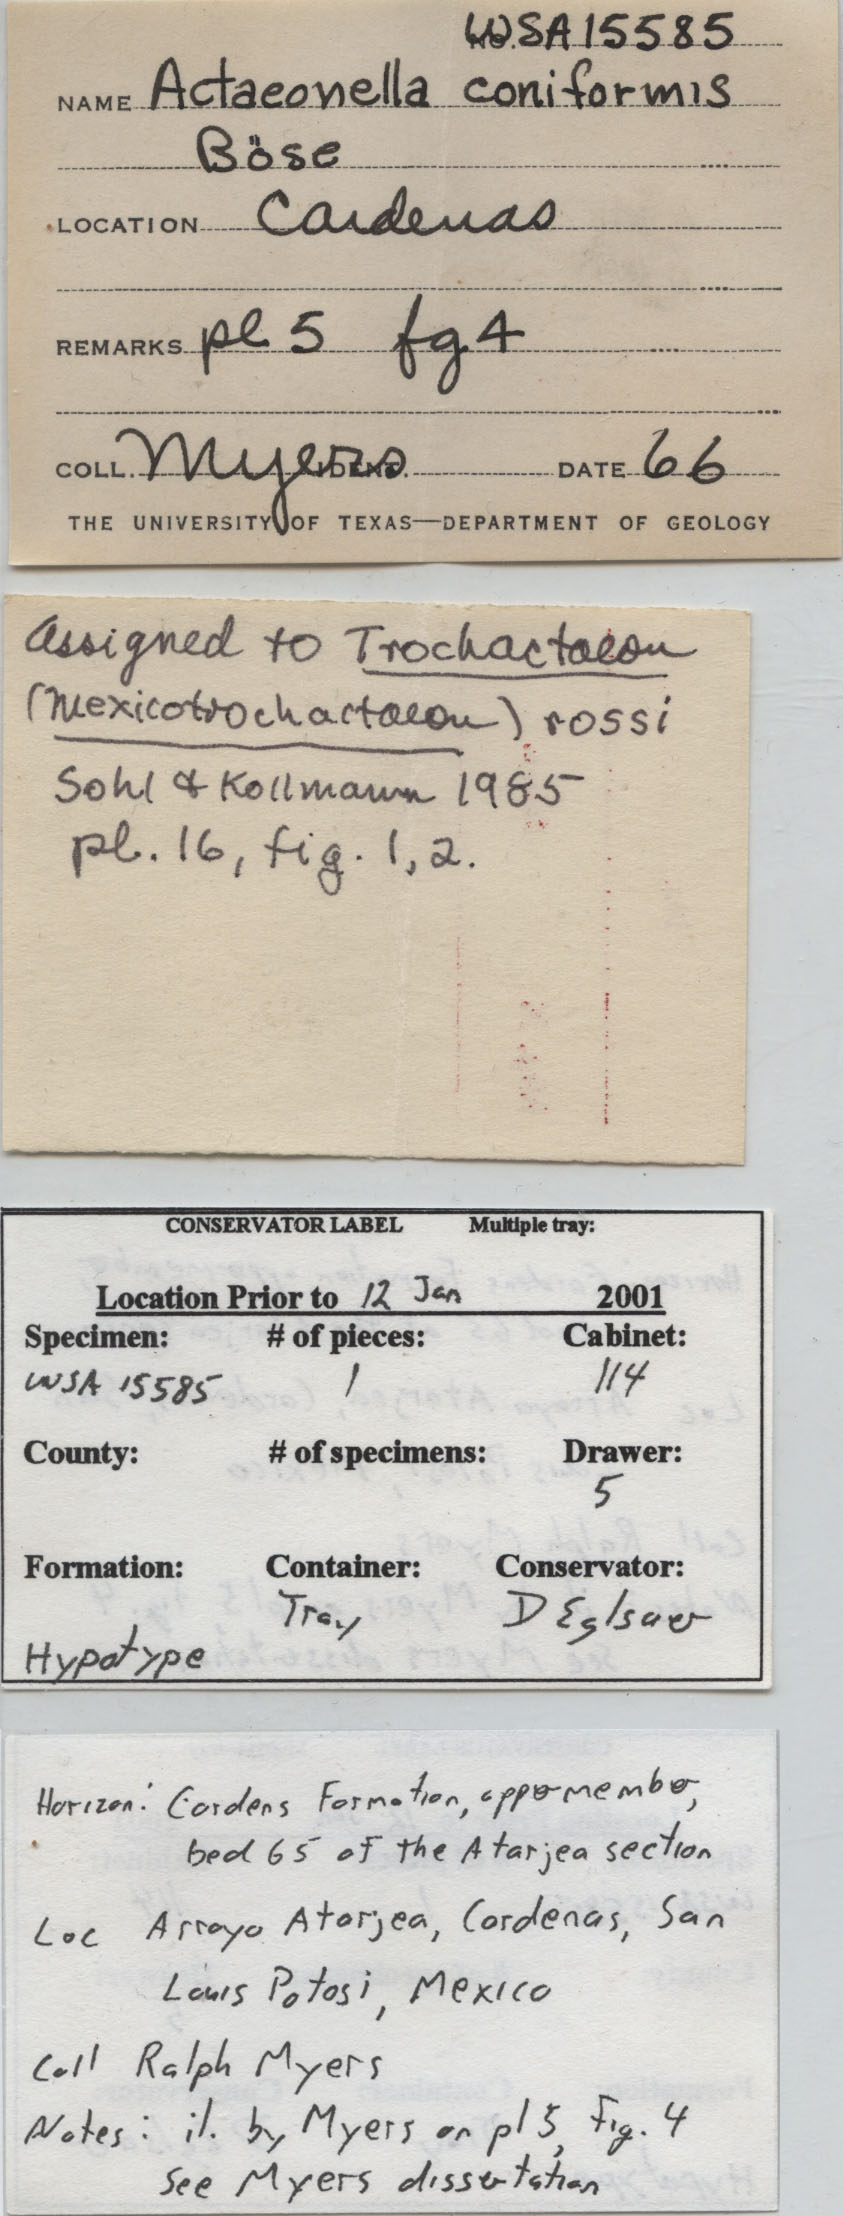 No. WSA 15585
NAME Actaeonella coniformis
Böse
LOCATION Cardenas
REMARKS pl 5 fg 4
COLL. Myers IDENT. DATE 66
THE UNIVERSITY OF TEXAS—DEPARTMENT OF GEOLOGY
Assigned to Trochactaeon
(Mexicotrochactaeon) rossi
Sohl & Kollmann 1985
pl. 16, fig. 1, 2.
CONSERVATOR LABEL Multiple tray:
Location Prior to 12 Jan 2001
Specimen: # of pieces: Cabinet:
WSA 15585 1 114
County: # of specimens: Drawer:
5
Formation: Container: Conservator:
Tray D Eglsaer
Hypotype
Horizon: Cardens Formation, upper member,
bed 65 of the Atarjea section
Loc Arroyo Atarjea, Cardenas, San
Louis Potosi, Mexico
Coll Ralph Myers
Notes: il. by Myers on pl 5, Fig. 4
See Myers dissertation